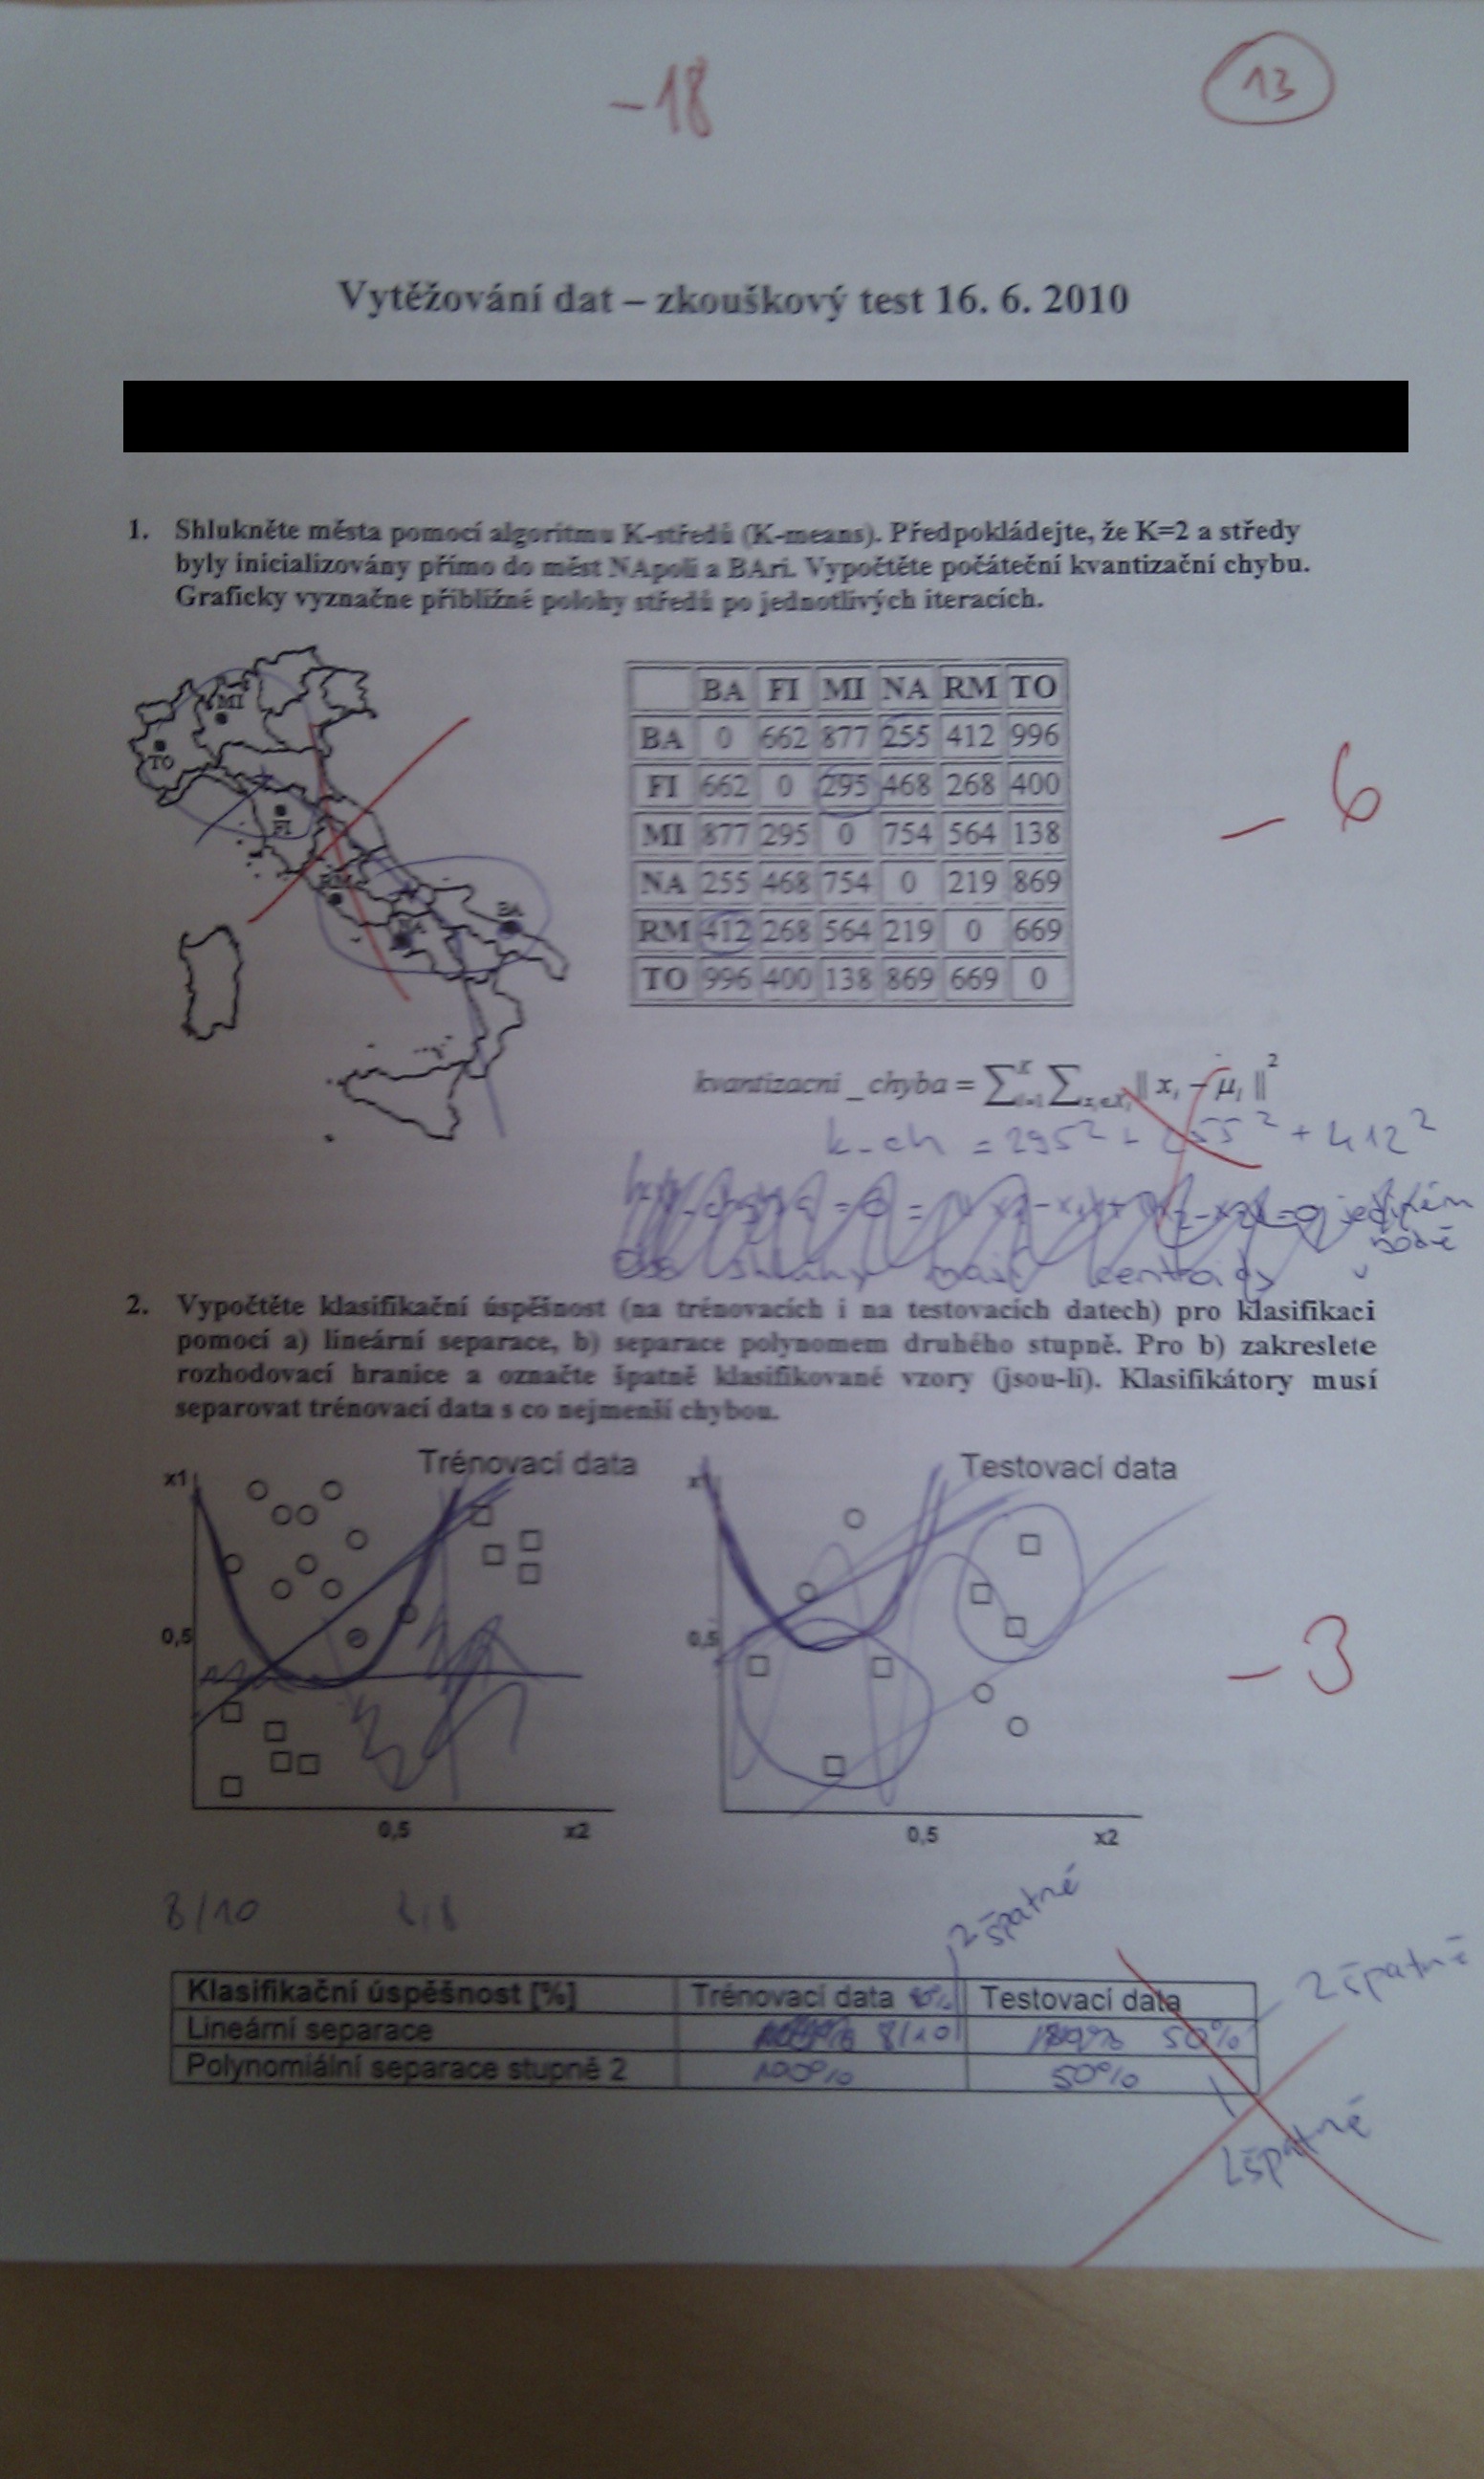 -18
13
Vytěžování dat – zkouškový test 16. 6. 2010
1. Shlukněte města pomocí algoritmu K-středů (K-means). Předpokládejte, že K=2 a středy
byly inicializovány přímo do měst NApoli a BAri. Vypočtěte počáteční kvantizační chybu.
Graficky vyznačne přibližné polohy středů po jednotlivých iteracích.
MI
TO
FI
RM
NA
BA
BA FI MI NA RM TO
BA 0 662 877 255 412 996
FI 662 0 295 468 268 400
MI 877 295 0 754 564 138
NA 255 468 754 0 219 869
RM 412 268 564 219 0 669
TO 996 400 138 869 669 0
- 6
kvantizacni_chyba = ∑ ∑ || x - μ ||²
k_ch = 295² + 255² + 412²
2. Vypočtěte klasifikační úspěšnost (na trénovacích i na testovacích datech) pro klasifikaci
pomocí a) lineární separace, b) separace polynomem druhého stupně. Pro b) zakreslete
rozhodovací hranice a označte špatně klasifikované vzory (jsou-li). Klasifikátory musí
separovat trénovací data s co nejmenší chybou.
x1 Trénovací data
0,5
0,5 x2
Testovací data
0,5
0,5 x2
- 3
8/10
2 špatné
Klasifikační úspěšnost [%] Trénovací data Testovací data
2 špatné
Lineární separace 8/10 50%
Polynomiální separace stupně 2 100% 50%
2 špatné